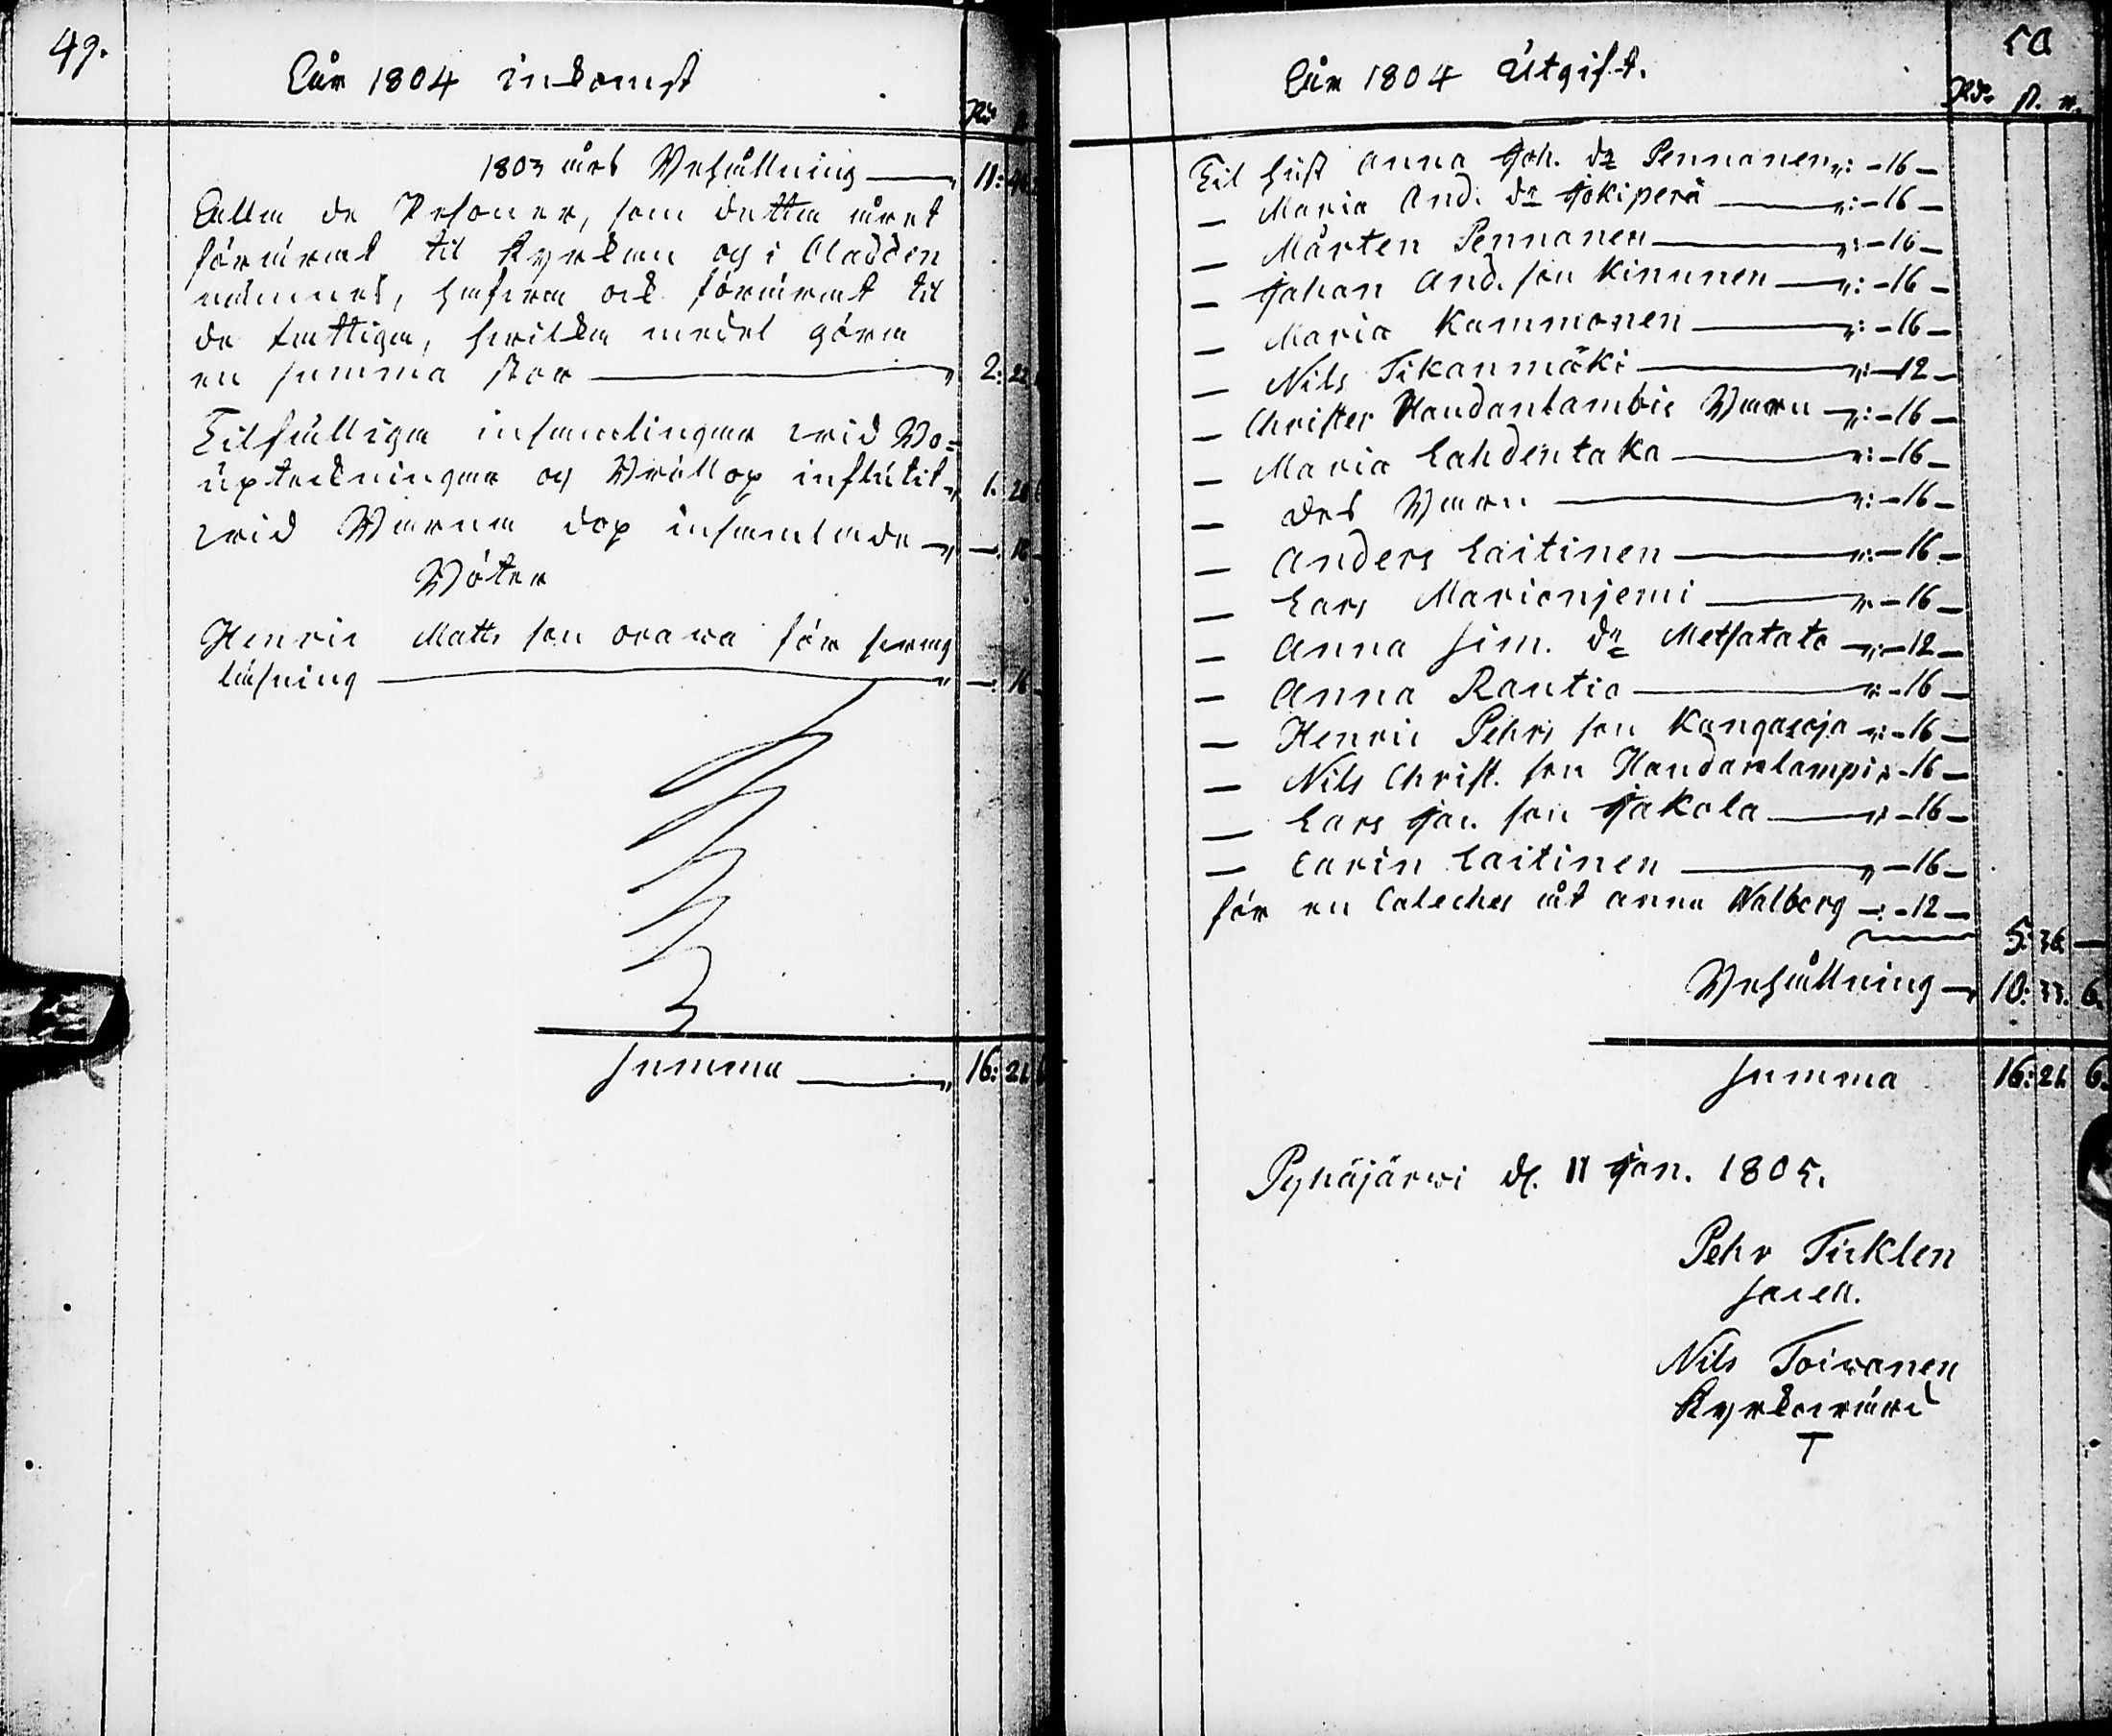 49.
Åår 1804 inkomst
Rd
1803 års Behållning — 11: 44
Alla de Persomer, som detta året
förärat til Kyrckan og i Cladden
nämnes, hafwa ock förärat til
de fattiga, hwilka medel göra
en summa stor — 2: 22
Tilfälliga insamlingar wid Bo=
upteckningar og Bröllop influtit — 1. 20
wid Barna dop insamlade — —. 16
Böter
Henric Matts son orawa för
läsning — —: 16
Summa — 16: 21
50
Åår 1804 Utgift.
Rdr ß. r.
Til hust anna Joh. dr Pennanen „: - 16 -
— Maria And. dr Jokiperä — „: - 16 -
— Mårten Pennanen — „: - 16 -
— Johan And. son Kinunen — „: - 16 -
— Maria Kammonen — „: - 16 -
— Nils Tikanmäki — „: - 12 -
— Christer Haudanlambis Barn — „: - 16 -
— Maria Lahdentaka — „: - 16 -
— des Barn — „: - 16 -
— Anders Laitinen — „: - 16 -
— Lars Marianjemi — „: - 16 -
— Anna Sim. dr Metsatato — „: - 12 -
— Anna Rautio — „: - 16 -
— Henric Pehrs son Kangasoja „: - 16 -
— Nils Christ. son Haudanlampi „ - 16 -
— Lars Jac. son Jakola — „: - 16 -
— Carin Laitinen — „ - 16 -
för en Cateches åt anna Walberg —: - 12 -
5: 36 —
Behållning — 10: 33. 6.
Summa 16: 21. 6.
Pyhäjärwi d. 11 Jan. 1805.
Pehr Ticklen
Sacell.
Nils Toiwanen
Kyrckiowärd